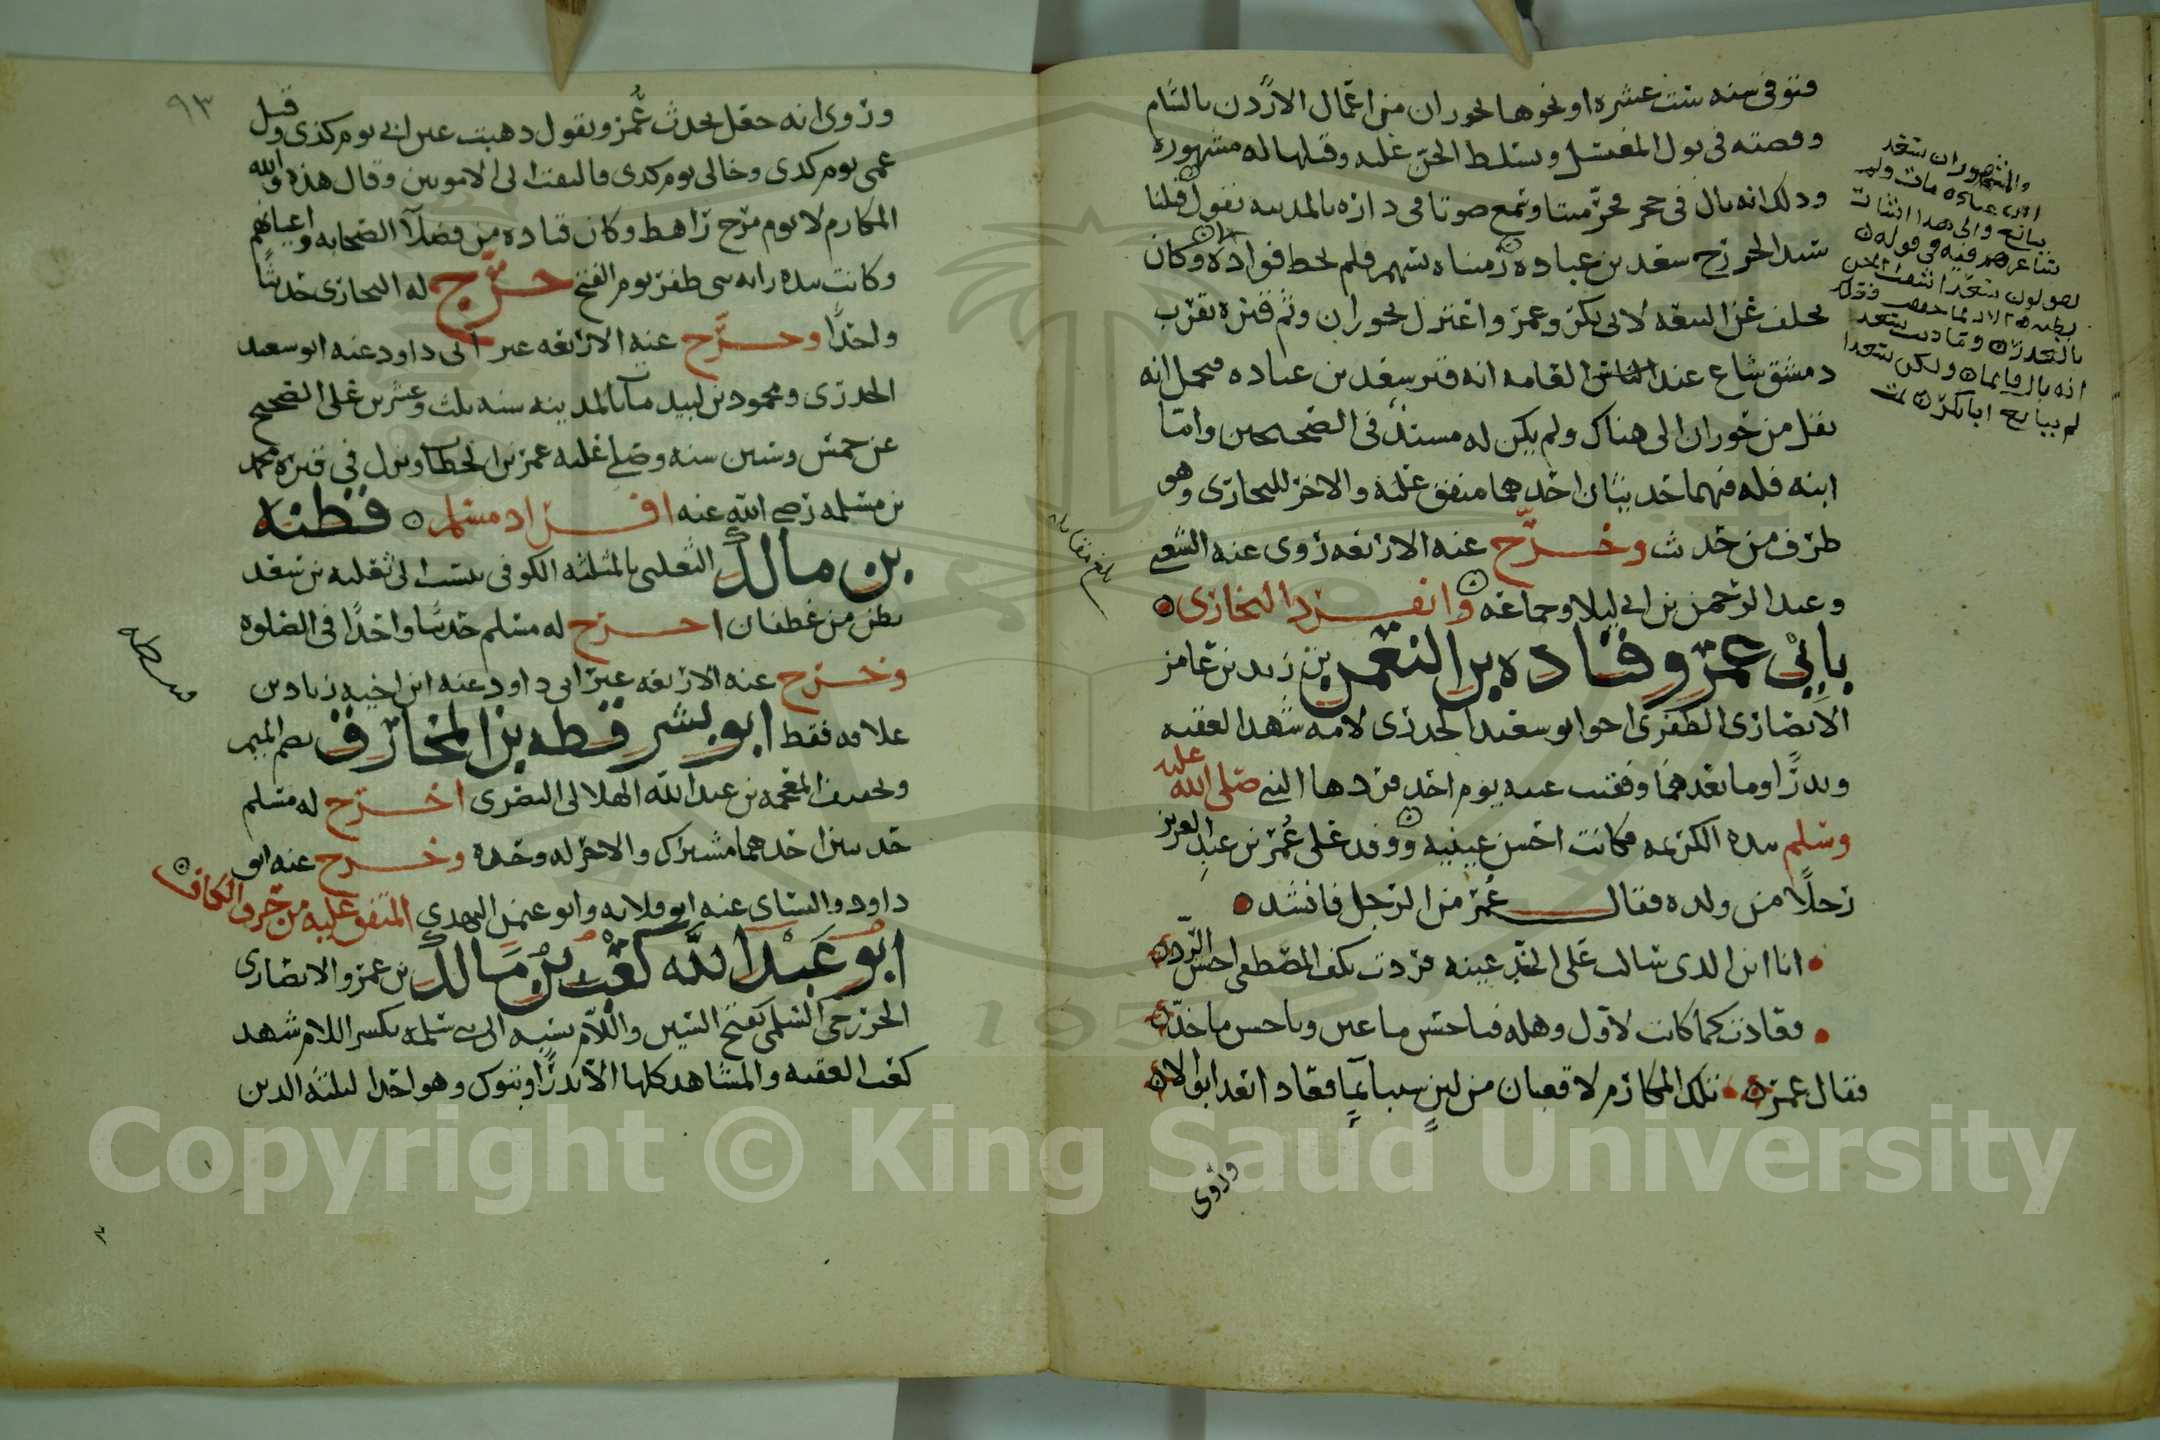 وتوفي سنه ست عشره او نحوها بحوران من اعمال الاردن بالشام
وقصته في بول المغتسل وتسلط الجن عليه وقتلها له مشهوره
وذلك انه بال في جحر فخر ميتا وسمع صوتا في داره بالمدينه نقول قتلنا
سيد الخزرج سعد بن عباده رميناه بسهم فلم نخط فواده وكان
تخلف عن البيعه لابي بكر وعمر واعتزل بحوران وثم قبره بقرب
دمشق شاع عند العامه انه قبر سعد بن عباده فيحمل انه
نقل من حوران الى هناك ولم يكن له مسند في الصحيحين واما
ابنه فله فيهما حديثان احدهما متفق عليه والاخر للبخاري وهو
طرف من حديث وخرج عنه الاربعه روى عنه الشعبي
وعبد الرحمن بن ابي ليلا وجماعه وانفرد البخاري
بابي عمرو قتاده بن النعمن بن زيد بن عامر
الانصاري الظفري اخو ابو سعيد الخدري لامه شهد العقبه
وبدرا وما بعدهما وفقئت عينه يوم احد فردها النبي صلى الله عليه
وسلم بيده الكريمه فكانت احسن عينيه ووفد على عمر بن عبد العزيز
رجلا من ولده فقال عمر من الرجل فانشد
انا ابن الذي سالت على الخد عينه فردت بكف المصطفى احسن الرد
فعادت كما كانت لاول وهله فيا حسن ما عين ويا حسن ما خد
فقال عمر تلك المكارم لا قعبان من لبن شيبا بماء فعادا بعد ابوالا
وروى
والمشهور ان سعد
ابن عباده مات ولم
يبايع والى هذا اشار
شاعرهم فيه في قوله
يقولون سعدا شقت الجن
بطنه الا ربما حققت فعلك
بالغدر وما ذنب سعد
انه بال قايما ولكن سعدا
لم يبايع ابا بكر
٩٣
وروى انه جعل يحدث عمر ويقول ذهبت عين ابي يوم كذى وقتل
عمي يوم كدى وخالي يوم كدى فالتفت الى الامويين وقال هذه والله
المكارم لا يوم مرج راهط وكان قتاده من فضلا الصحابه واعيانهم
وكانت بيده رايه بني ظفر يوم الفتح خرج له البخاري حديثا
واحدا وخرج عنه الاربعه غير ابي داود عنه ابو سعيد
الخدري ومحمود بن لبيد مات بالمدينه سنه ثلث وعشرين على الصحيح
عن خمس وستين سنه وصلى عليه عمر بن الخطاب ونزل في قبره محمد
بن مسلمه رضي الله عنه افراد مسلم قطبه
بن مالك الثعلبي بالمثلثه الكوفي ينسب الى ثعلبه بن سعد
بطن من غطفان اخرج له مسلم حديثا واحدا في الصلوه
وخرج عنه الاربعه غير ابي داود عنه ابن اخيه زياد بن
علاقه فقط ابو بشر قطبه بن المخارق بضم الميم
وتخفيف المعجمه بن عبد الله الهلالي البصري اخرج له مسلم
حديثين احدهما مشترك والاخر له وحده وخرج عنه ابو
داود والنساي عنه ابو قلابه وابو عثمن النهدي المتفق عليه من حرف الكاف
ابو عبد الله كعب بن مالك بن عمرو الانصاري
الخزرجي السلمي بفتح السين واللام نسبه الى بني سلمه بكسر اللام شهد
كعب العقبه والمشاهد كلها الا بدرا وتبوك وهو احد الثلثه الذين